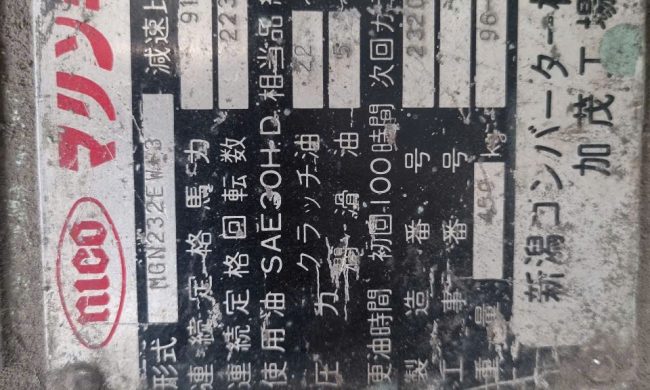 NICO マリンギ
形式 MGN232EW-3 減速比
連続定格馬力 91
連続定格回転数 223
使用油 SAE30HD相当品
圧力 クラッチ油 22
潤滑油 5
更油時間 初回100時間 次回
製造番号 2320
工事番号 96-
重量 450 kg
新潟コンバーター株
加茂工場